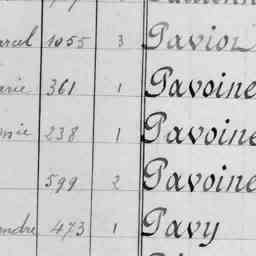 arcel 1055 3 Paviol
arie 361 1 Pavoine
238 1 Pavoine
599 2 Pavoine
andre 473 1 Pavy